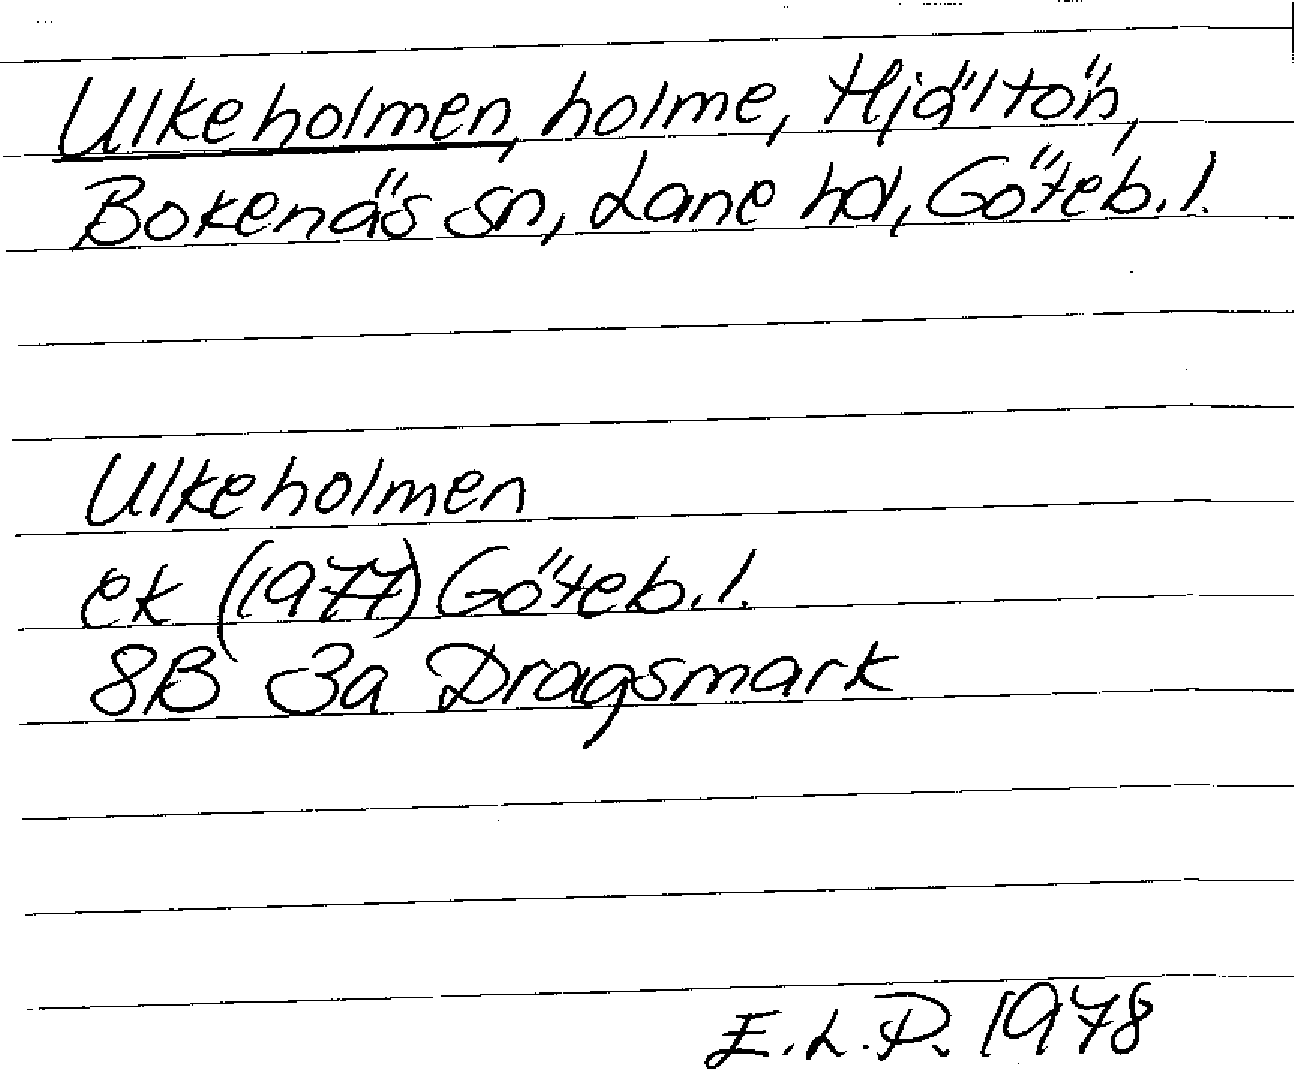 Ulkeholmen, holme, Hjältön,
Bokenäs sn, Lane hd, Göteb. l.
Ulkeholmen
ek (1977) Göteb. l.
8B 3a Dragsmark
E. L. P. 1978